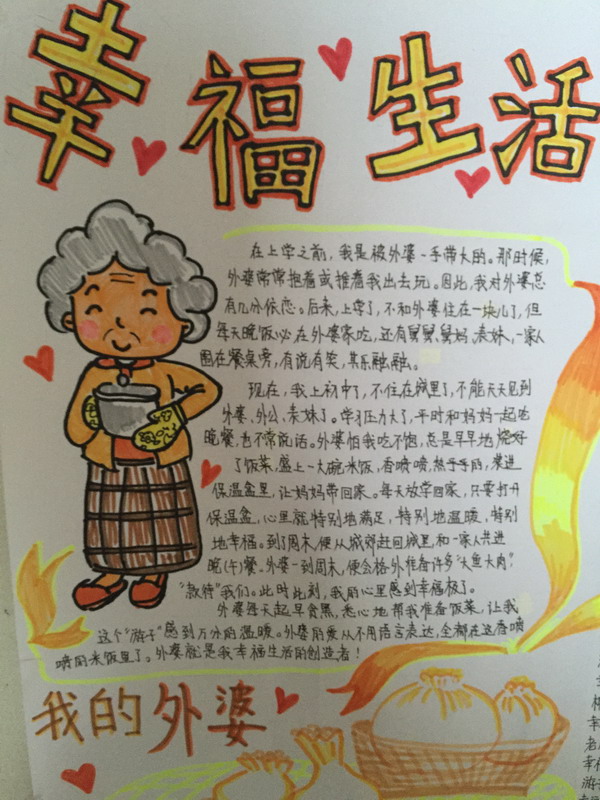 幸福生活
在上学之前，我是被外婆一手带大的。那时候，
外婆常常抱着或推着我出去玩。因此，我对外婆总
有几分依恋。后来，上学了，不和外婆住在一块儿了，但
每天晚饭必在外婆家吃，还有舅舅、舅妈、表妹，一家人
围在餐桌旁，有说有笑，其乐融融。
现在，我上初中了，不住在城里了，不能天天见到
外婆、外公、表妹了。学习压力大了，平时和妈妈一起吃
晚餐，也不常说话。外婆怕我吃不饱，总是早早地烧好
了饭菜，盛上一大碗米饭，香喷喷，热乎乎的，装进
保温盒里，让妈妈带回家。每天放学回家，只要打开
保温盒，心里就特别地满足，特别地温暖，特别
地幸福。到了周末，便从城郊赶回城里，和一家人共进
晚(午)餐。外婆一到周末，便会格外准备许多"大鱼大肉"
"款待"我们。此时此刻，我的心里感到幸福极了。
外婆每天起早贪黑，悉心地帮我准备饭菜，让我
这个"游子"感到万分的温暖。外婆的爱从不用语言表达，全都在这香喷
喷的米饭里了。外婆就是我幸福生活的创造者！
我的外婆
老
幸福
游子